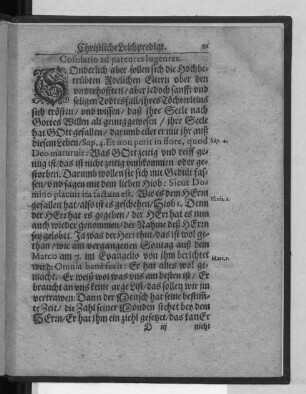 Christliche Leichpredigt.
Cõsolatio ad parentes lugentes.
SOnderlich aber sollen sich die Hochbe-
trübten Adelichen Eltern ober den
vnverhofften / aber jedoch sanfft vnd
seligen Todtesfall / jhres Töchterleins
sich trösten / vnd wissen / daß jhre Seele nach
Gottes Willen alt gnug gewesen / jhre Seele
hat GOtt gefallen / darumb eilet er mit jhr auß
diesem Leben / Sap. 4. Et non perit in flore, quod
Sap. 4.
Deo maturuit: Was GOtt zeitig vnd reiff ge-
nug ist / das ist nicht zeitig vmbkommen oder ge-
storben. Darumb wollen sie sich mit Gedult fas-
sen / vnd sagen mit dem lieben Hiob: Sicut Do-
mino placuit ita factum est. Wie es dem HErrn
gefallen hat / also ist es geschehen / Hiob 1. Denn
Hiob. 1.
der HErr hat es gegeben / der HErr hat es nun
auch wieder genommen / der Nahme deß HErrn
sey gelobet. Ja was der Herr thut / das ist wol ge-
than / wie am vergangenen Sontag auß dem
Marco am 7. im Evangelio von jhm berichtet
Marc. 7.
wird: Omnia benè fecit: Er hat alles wol ge-
macht. Er weiß wol was vns am besten ist / Er
braucht an vns keine arge List / das sollen wir jm
vertrawen: Dann der Mensch hat seine bestim̃-
te Zeit / die Zahl seiner Monden stehet bey dem
HErrn / Er hat jhm ein ziehl gesetzet / das kan Er
D iij nicht